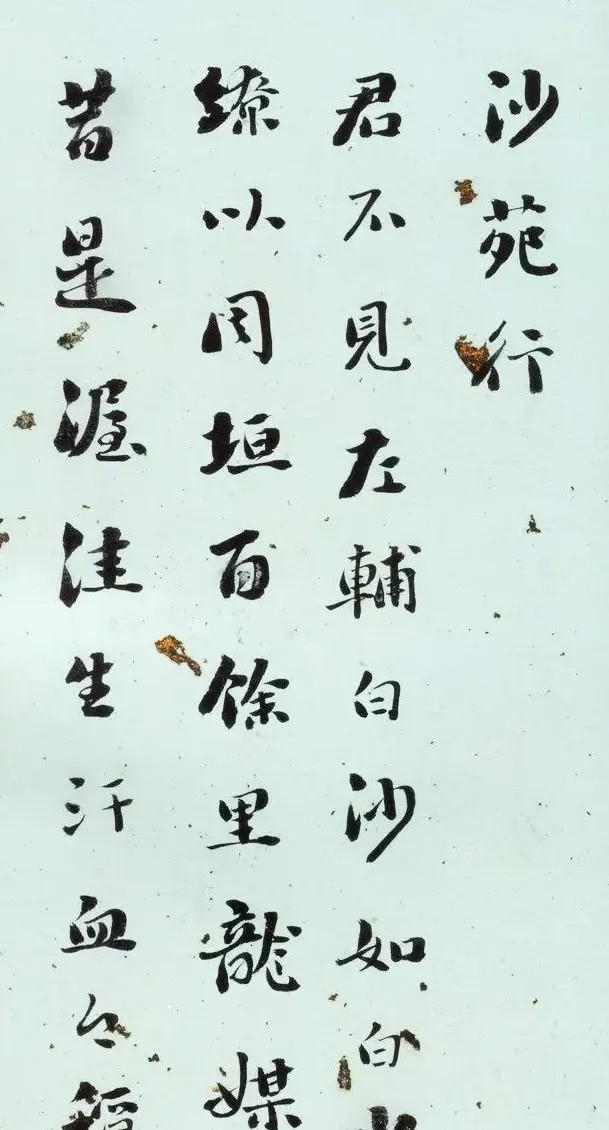 沙苑行
君不見左輔白沙如白
繚以周垣百餘里龍媒
昔是渥洼生汗血今